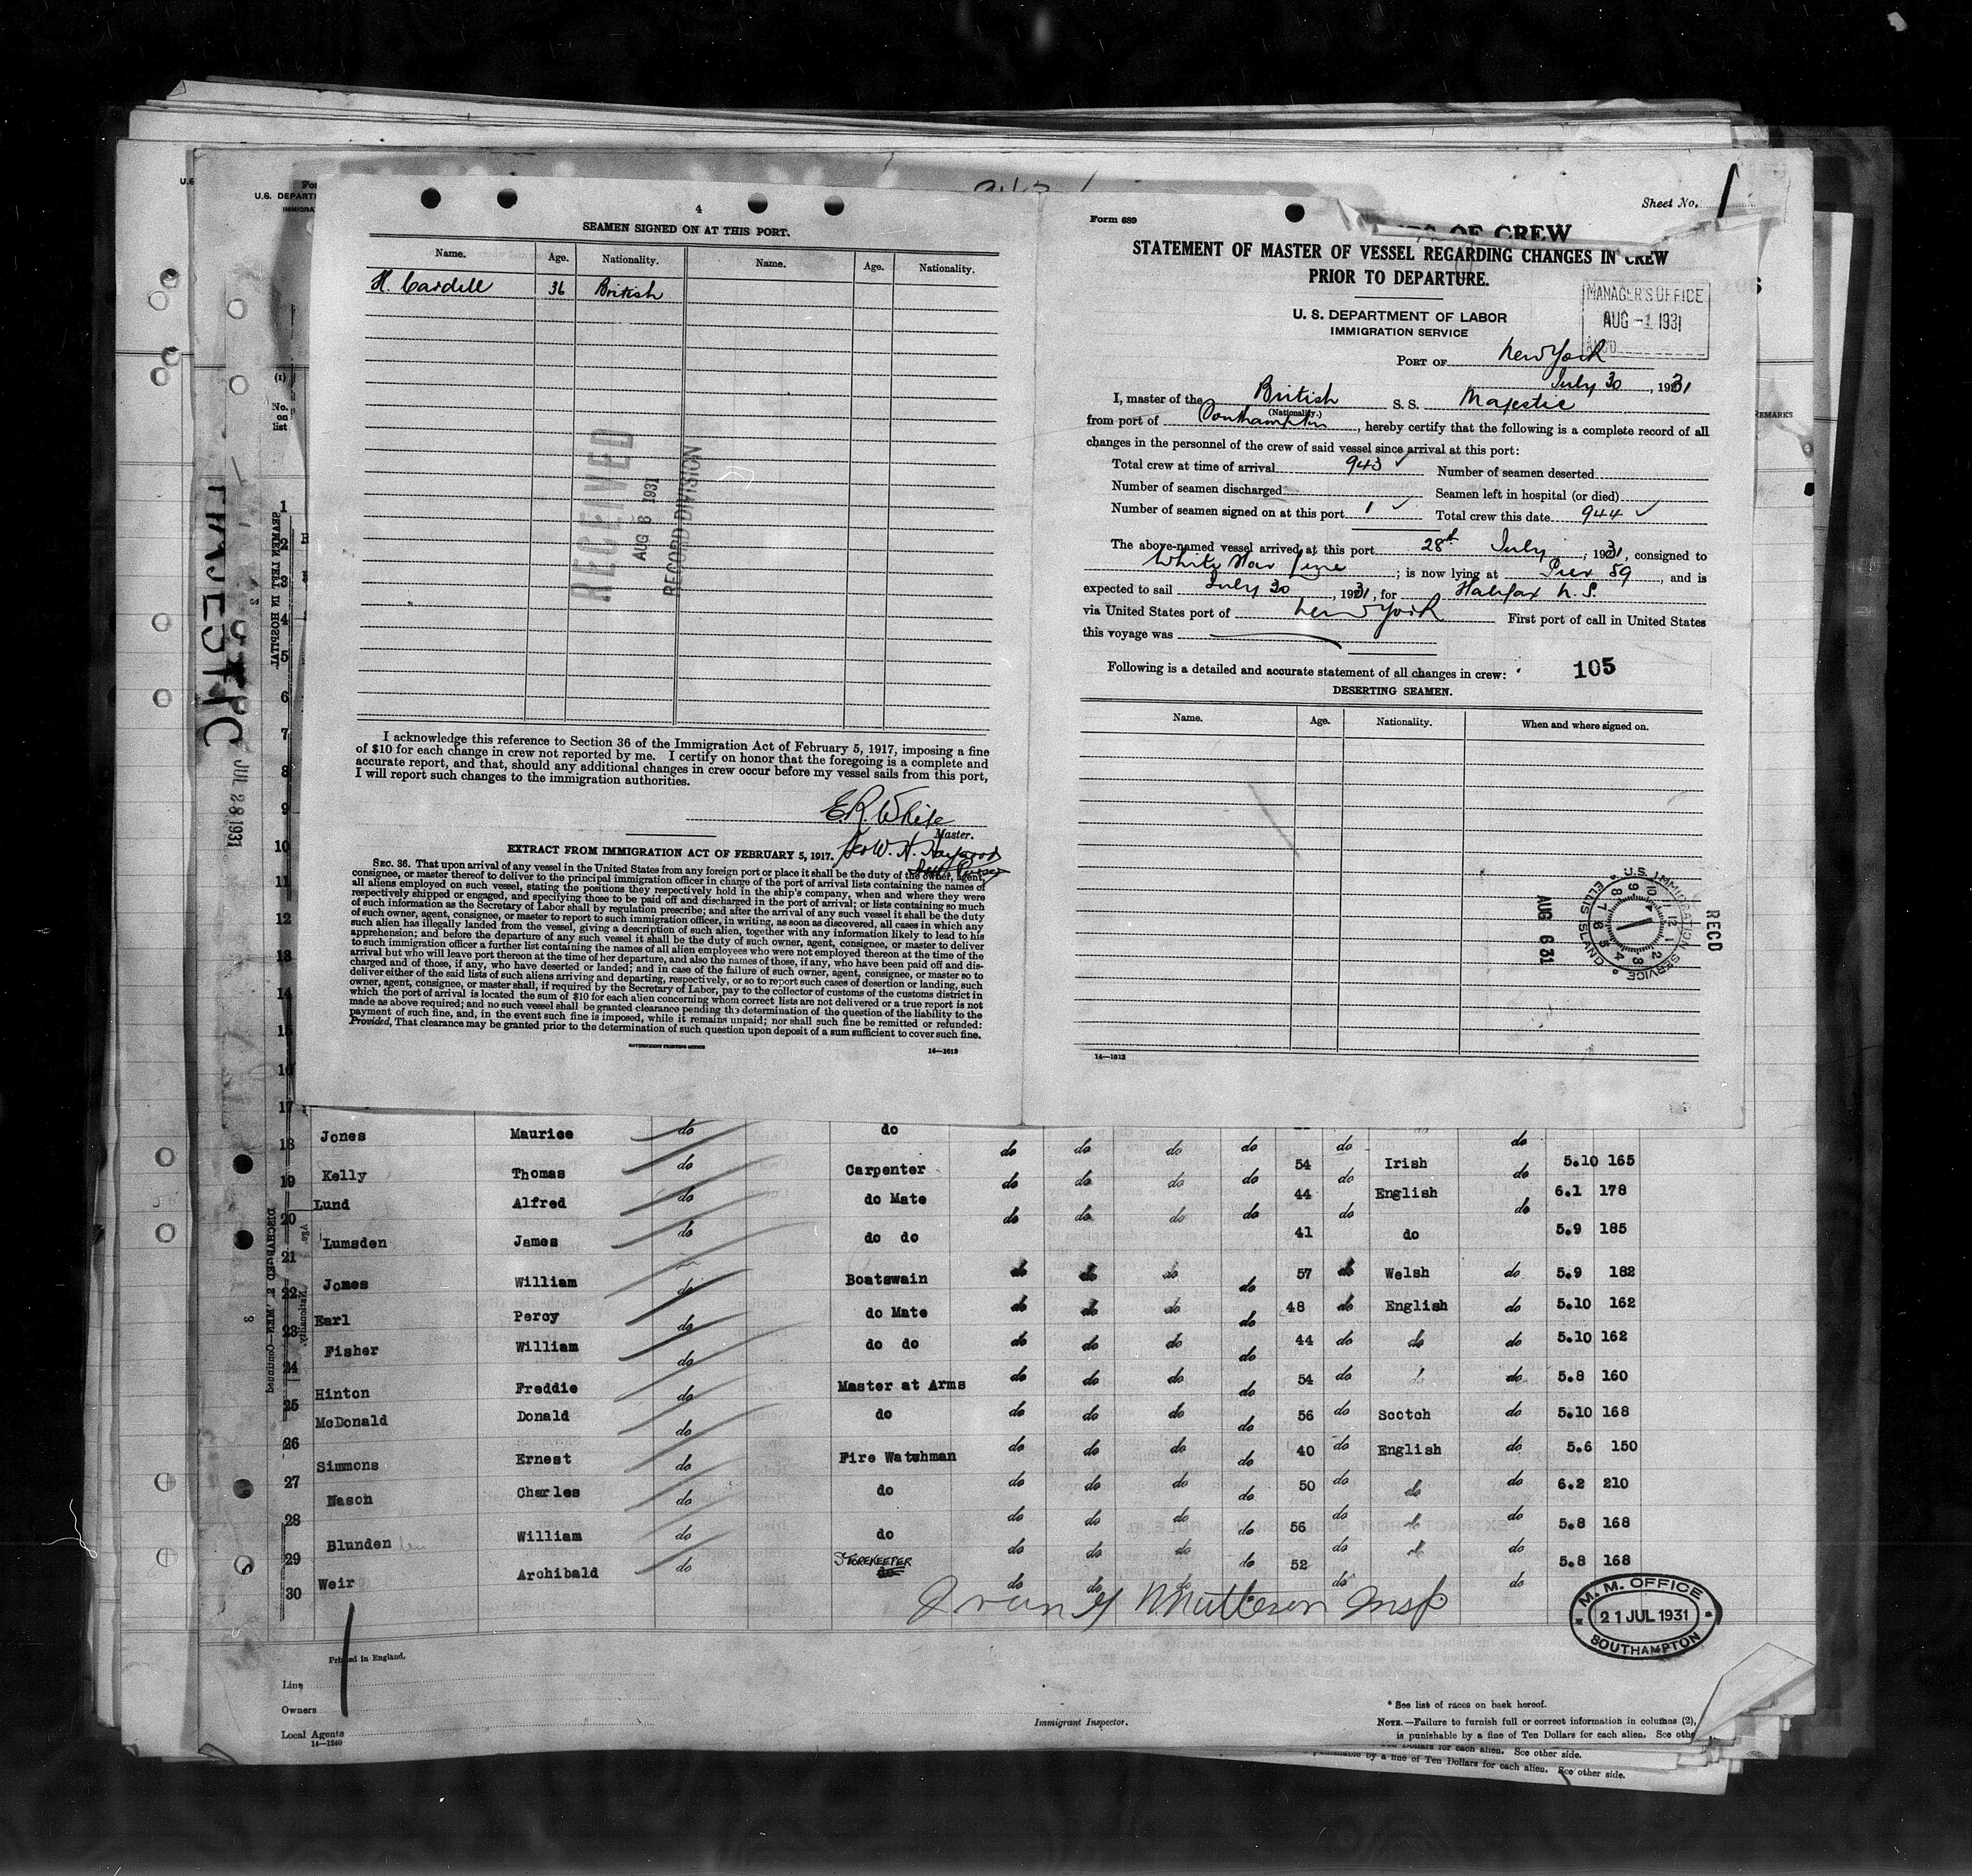 4
SEAMEN SIGNED ON AT THIS PORT.
Name. Age. Nationality. Name. Age. Nationality.
H. Cardell 36 British
RECEIVED
AUG 6 1931
RECORD DIVISION
I acknowledge this reference to Section 36 of the Immigration Act of February 5, 1917, imposing a fine
of $10 for each change in crew not reported by me. I certify on honor that the foregoing is a complete and
accurate report, and that, should any additional changes in crew occur before my vessel sails from this port,
I will report such changes to the immigration authorities.
E.R. White
Master.
EXTRACT FROM IMMIGRATION ACT OF FEBRUARY 5, 1917.
SEC. 36. That upon arrival of any vessel in the United States from any foreign port or place it shall be the duty of the owner, agent,
consignee, or master thereof to deliver to the principal immigration officer in charge of the port of arrival lists containing the names of
all aliens employed on such vessel, stating the positions they respectively hold in the ship's company, when and where they were
respectively shipped or engaged, and specifying those to be paid off and discharged in the port of arrival; or lists containing so much
of such information as the Secretary of Labor shall by regulation prescribe; and after the arrival of any such vessel it shall be the duty
of such owner, agent, consignee, or master to report to such immigration officer, in writing, as soon as discovered, all cases in which any
such alien has illegally landed from the vessel, giving a description of such alien, together with any information likely to lead to his
apprehension; and before the departure of any such vessel it shall be the duty of such owner, agent, consignee, or master to deliver
to such immigration officer a further list containing the names of all alien employees who were not employed thereon at the time of the
arrival but who will leave port thereon at the time of her departure, and also the names of those, if any, who have been paid off and dis-
charged and of those, if any, who have deserted or landed; and in case of the failure of such owner, agent, consignee, or master so to
deliver either of the said lists of such aliens arriving and departing, respectively, or so to report such cases of desertion or landing, such
owner, agent, consignee, or master, shall, if required by the Secretary of Labor, pay to the collector of customs of the customs district in
which the port of arrival is located the sum of $10 for each alien concerning whom correct lists are not delivered or a true report is not
made as above required; and no such vessel shall be granted clearance pending the determination of the question of the liability to the
payment of such fine, and, in the event such fine is imposed, while it remains unpaid; nor shall such fine be remitted or refunded:
Provided, That clearance may be granted prior to the determination of such question upon deposit of a sum sufficient to cover such fine.
GOVERNMENT PRINTING OFFICE
14—1613
Sheet No. 1
Form 689
OF CREW
STATEMENT OF MASTER OF VESSEL REGARDING CHANGES IN CREW
PRIOR TO DEPARTURE.
U. S. DEPARTMENT OF LABOR
IMMIGRATION SERVICE
MANAGER'S OFFICE
AUG -1 1931
PORT OF New York
July 30, 1931
I, master of the British S. S. Majestic
(Nationality.)
from port of Southampton, hereby certify that the following is a complete record of all
changes in the personnel of the crew of said vessel since arrival at this port:
Total crew at time of arrival 943 Number of seamen deserted
Number of seamen discharged Seamen left in hospital (or died)
Number of seamen signed on at this port 1 Total crew this date 944
The above-named vessel arrived at this port 28th July, 1931, consigned to
White Star Line; is now lying at Pier 59, and is
expected to sail July 30, 1931, for Halifax N.S.
via United States port of New York First port of call in United States
this voyage was
Following is a detailed and accurate statement of all changes in crew:
105
DESERTING SEAMEN.
Name. Age. Nationality. When and where signed on.
U.S. IMMIGRATION SERVICE
ELLIS ISLAND
RECD
AUG 6 31
14—1613
MAJESTIC
JUL 28 1931
(1)
No. on list
1
2
3
4
5
6
7
8
9
10
11
12
13
14
15
16
17
18 Jones Maurice do do do do do do do do
19 Kelly Thomas do Carpenter do do do do 54 do Irish do 5.10 165
20 Lund Alfred do do Mate do do do do 44 do English do 6.1 178
21 Lumsden James do do do 41 do 5.9 185
22 Jones William do Boatswain do do do do 57 do Welsh do 5.9 182
23 Earl Percy do do Mate do do do do 48 do English do 5.10 162
24 Fisher William do do do do do do do 44 do do do 5.10 162
25 Hinton Freddie do Master at Arms do do do do 54 do do 5.8 160
26 McDonald Donald do do do do do do 56 do Scotch do 5.10 168
27 Simmons Ernest do Fire Watchman do do do do 40 do English do 5.6 150
28 Nason Charles do do do do do do 50 do do do 6.2 210
29 Blunden William do do do do do do 56 do do do 5.8 168
30 Weir Archibald do STOREKEEPER do do do do 52 do do 5.8 168
M. M. OFFICE
21 JUL 1931
SOUTHAMPTON
Printed in England.
Line
Owners
Local Agents
14—1240
Immigrant Inspector.
* See list of races on back hereof.
NOTE.—Failure to furnish full or correct information in columns (2),
is punishable by a fine of Ten Dollars for each alien. See othe
Dollars for each alien. See other side.
punishable by a fine of Ten Dollars for each alien. See other side.